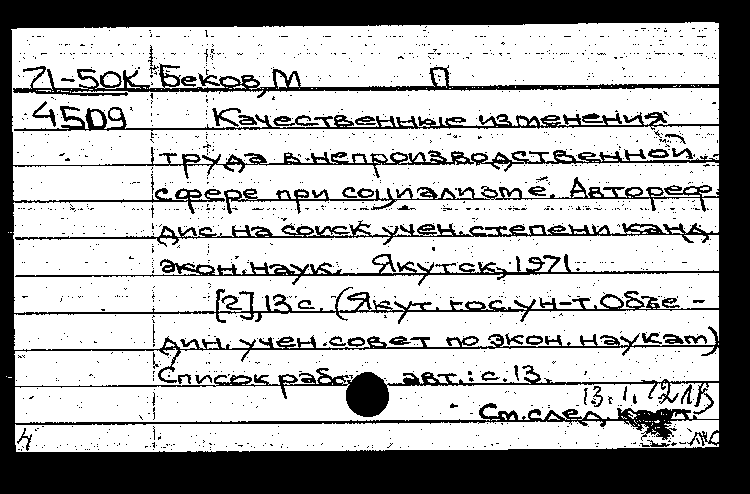 71-50К Беков, М П
4509 Качественные изменения
труда в непроизводственной
сфере при социализме. Автореф.
дис. на соиск учен. степени канд
экон. наук. Якутск, 1971.
[2], 13 с. (Якут. гос. ун-т. Объе -
дин. учен. совет по экон. наукам)
Список работ авт.: с. 13.
13.1.72
См. след. карт.
4